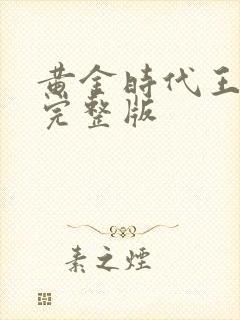 黄金時代王
完整版
素之煙